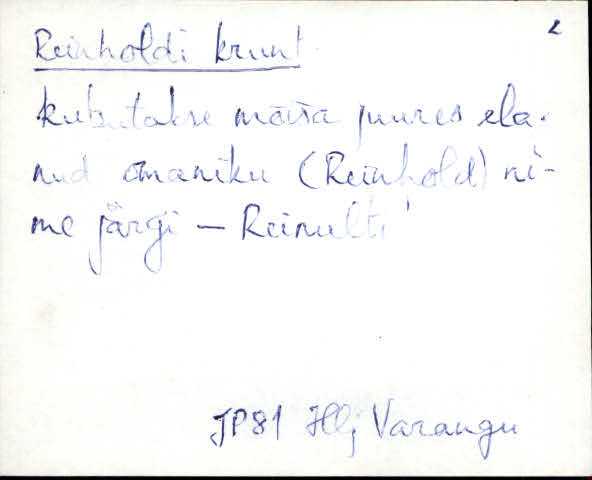 2
Reinholdi krunt
kutsutakse mõisa juures ela-
nud omaniku (Reinhold) ni-
me järgi – Reinulti
JP81 Hlj Varangu